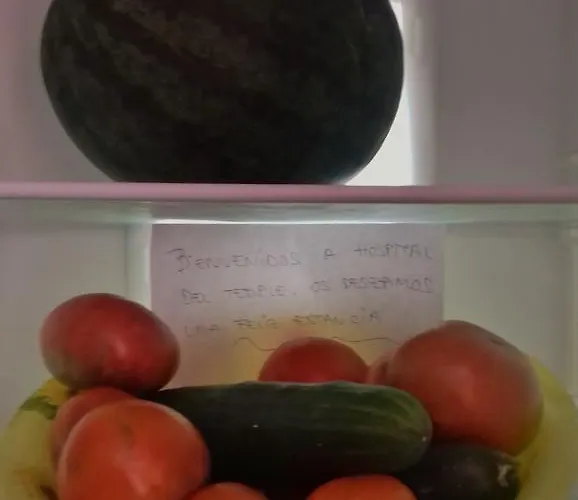 BIENVENIDOS A HOSPITAL
DEL TEMPLE. OS DESEAMOS
UNA FELIZ ESTANCIA